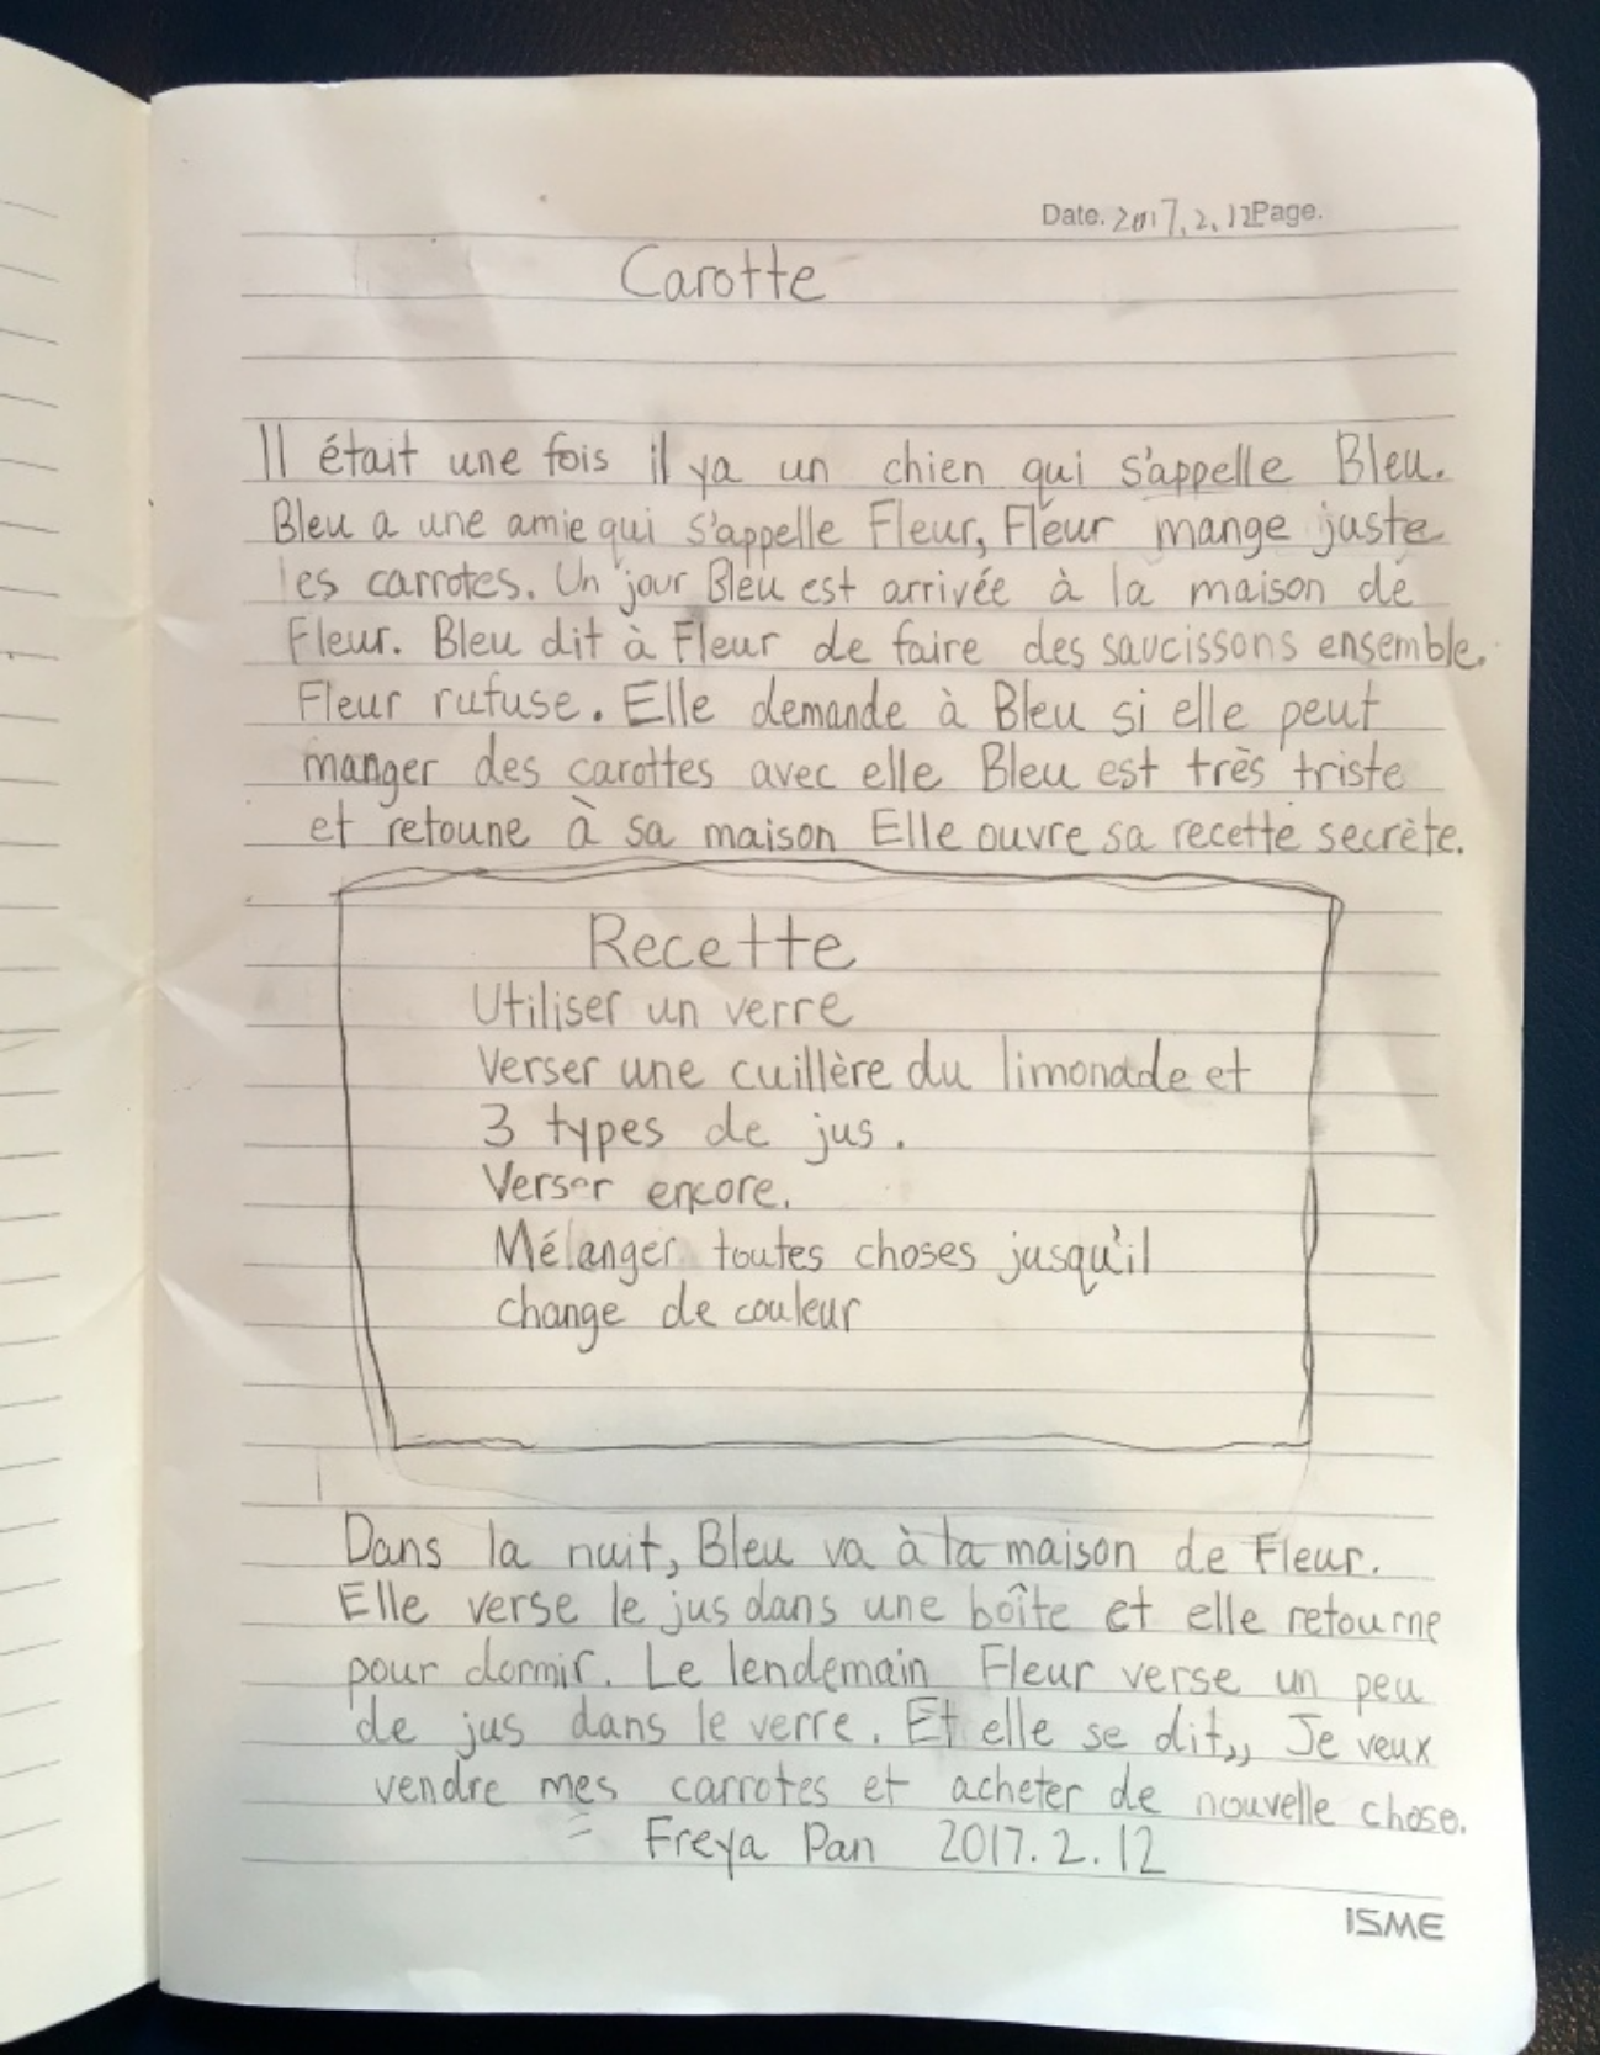 Date. 2017.2.12 Page.
Carotte
Il était une fois il ya un chien qui s'appelle Bleu.
Bleu a une amie qui s'appelle Fleur, Fleur mange juste
les carrotes. Un jour Bleu est arrivée à la maison de
Fleur. Bleu dit à Fleur de faire des saucissons ensemble.
Fleur rufuse. Elle demande à Bleu si elle peut
manger des carottes avec elle Bleu est très triste
et retoune à sa maison Elle ouvre sa recette secrète.
Recette
Utiliser un verre
Verser une cuillère du limonade et
3 types de jus.
Verser encore.
Mélanger toutes choses jusqu'il
change de couleur
Dans la nuit, Bleu va à la maison de Fleur.
Elle verse le jus dans une boîte et elle retourne
pour dormir. Le lendemain Fleur verse un peu
de jus dans le verre. Et elle se dit,, Je veux
vendre mes carrotes et acheter de nouvelle chose.
Freya Pan 2017.2.12
ISME